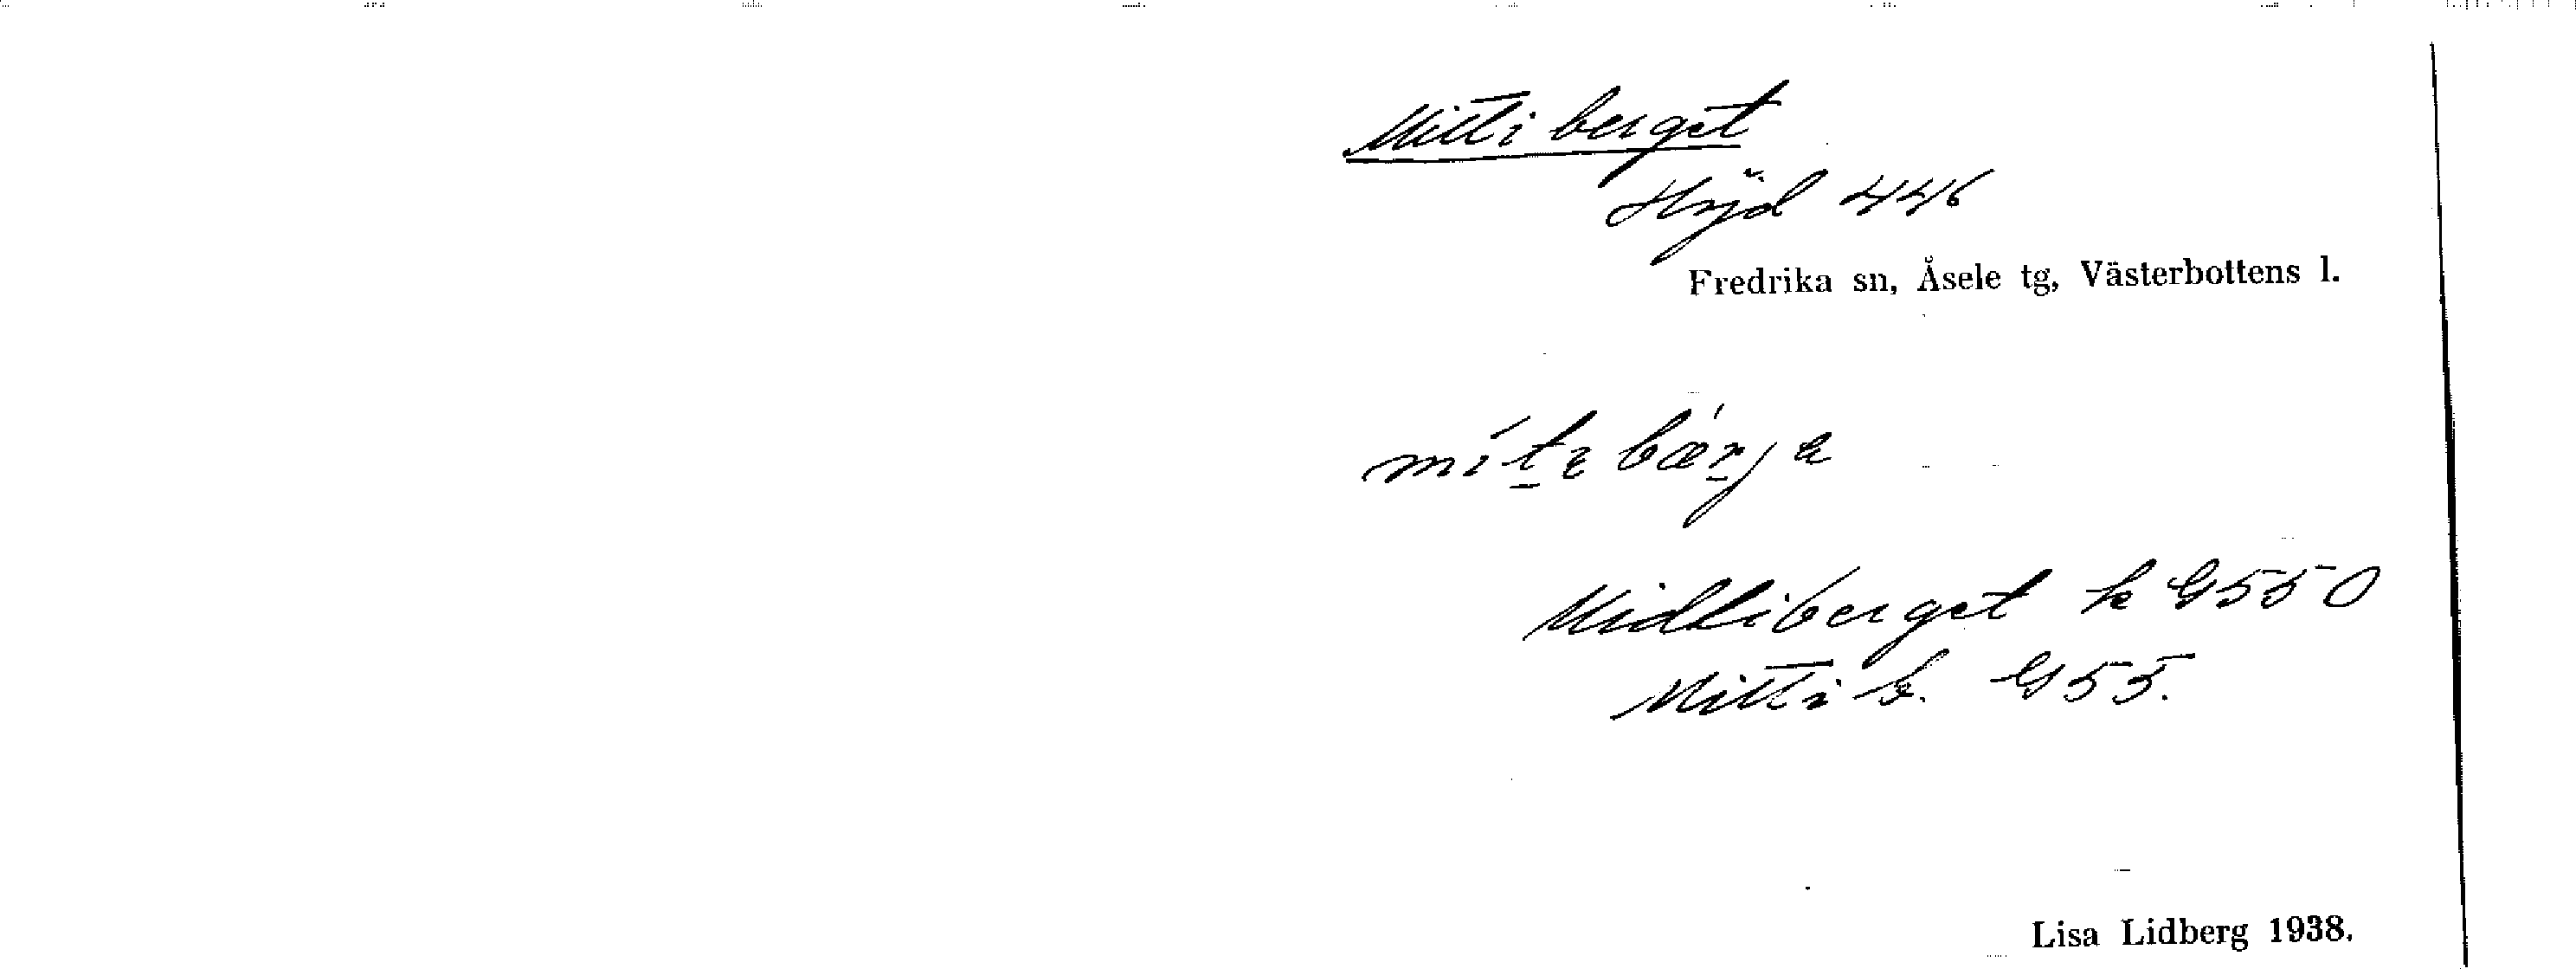 Mitti berget
Höjd 446
Fredrika sn, Åsele tg, Västerbottens l.
Midtiberget k G 55 O
Mitti b. G 55.
Lisa Lidberg 1938.